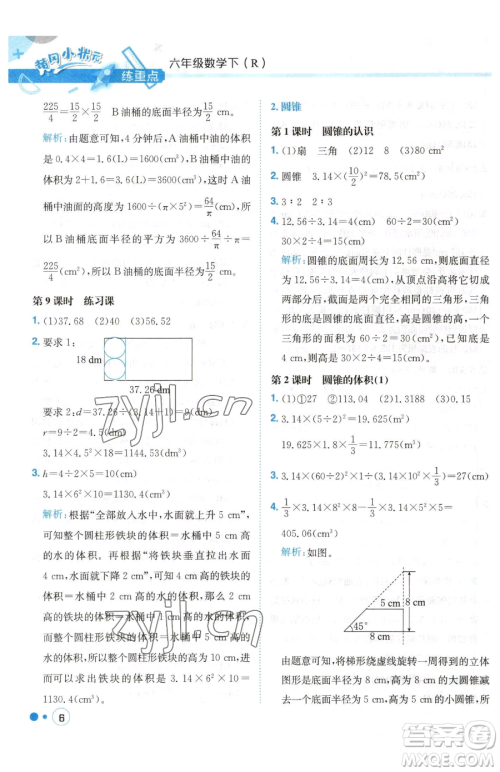 黄冈小状元
练重点
六年级数学下（R）
225/4=15/2×15/2 B油桶的底面半径为15/2 cm
解析：由题意可知，4分钟后，A油桶中油的体积
是0.4×4=1.6(L)=1600(cm³)，B油桶中油的
体积是2+1.6=3.6(L)=3600(cm³)，A油桶中
油的高度为1600÷(π×5²)=64/π(cm)，
所以B油桶底面半径的平方为3600÷64/π÷π=
225/4(cm)，所以底面半径是15/2 cm。
第9课时 练习课
1. (1)37.68 (2)40 (3)56.52
2. 要求1：
18 dm
37.26 dm
要求2：d=37.26÷(3.14+1)=9(cm)
r=9÷2=4.5(cm)
3.14×4.5²×18=1144.53(cm³)
3. h=4÷2×5=10(cm)
3.14×6²×10=1130.4(cm³)
解析：根据“全部放入水中，水面上升5 cm”，可得
整个圆柱形铁块的体积=水桶中高度为5 cm的
水的体积。再根据“将铁块垂直拉出水面
4 cm后，水面下降2 cm”，可得高4 cm的铁块的体
积=水桶中高度为2 cm的水的体积，所以水桶中
水的高度下降1 cm，铁块露出水面2 cm，由此可
得整个圆柱形铁块的高为2×5=10(cm)，
所以可以求出铁块的体积为3.14×6²×10=
1130.4(cm³)
6
2. 圆锥
第1课时 圆锥的认识
1. (1)扇 三角 (2)12 8 (3)80
2. 圆锥 3.14×(10/2)²=78.5(cm²)
3. 3∶2 2∶3
4. 12.56÷3.14=4(cm) 60÷2=30(cm²)
30×2÷4=15(cm)
解析：圆锥的底面周长为12.56 cm，则底面直径
为12.56÷3.14=4(cm)，从顶点沿高将它切成
两半，那部分是两个完全相同的三角形，三角形
的底是圆锥的底面直径，三角形的高是圆锥的
高，三角形的面积为60÷2=30(cm²)，已知底是
4 cm，所以高是30×2÷4=15(cm)。
第2课时 圆锥的体积(1)
1. (1)①27 ②15 (2)113.04
2. 3.14×(5÷2)²=19.625(m²)
19.625×1.8×1/3=11.775(m³)
3. 3.14×(6÷2)²×(10-1/3)=27(cm)
4. 1/3×3.14×8²×8-1/3×3.14×5²×5=
405.06(cm³)
解析：如图。
5 cm
5 cm
8 cm
45°
8 cm
由题意可知，将梯形绕虚线旋转一周得到的立体
图形是底面半径为8 cm、高为8 cm的大圆锥，截
去底面半径为5 cm、高为5 cm的小圆锥，所求
zyjl.cn
zyjl.cn
答案圈
MXQE.COM